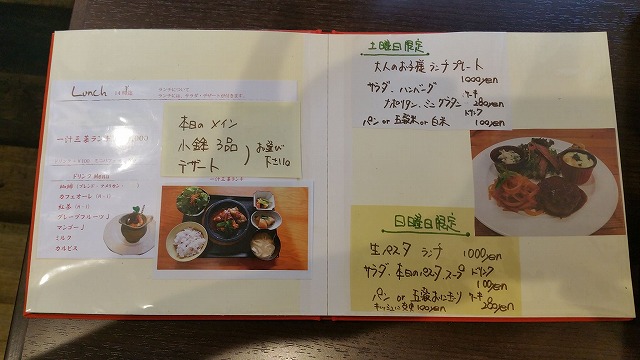 Lunch
ランチについて
ランチには、サラダ・デザートが付きます。
一汁三菜ランチ
本日の メイン
小鉢 3品
デザート
お選び
下さい。
ドリンク Menu
珈琲（ブレンド・アメリカン）
カフェオーレ（H・I）
紅茶（H・I）
グレープフルーツJ
マンゴーJ
ミルク
カルピス
一汁三菜ランチ
土曜日限定
大人のお子様 ランチプレート
1000yen
サラダ、ハンバーグ
ナポリタン、ミニグラタン
パン or 五穀米 or 白米
ケーキ
280yen
ドリンク
100yen
日曜日限定
生パスタ ランチ 1000yen
サラダ、本日のパスタ、スープ
パン or 五穀おにぎり
キッシュに変更 100yen
ドリンク
100yen
ケーキ
280yen